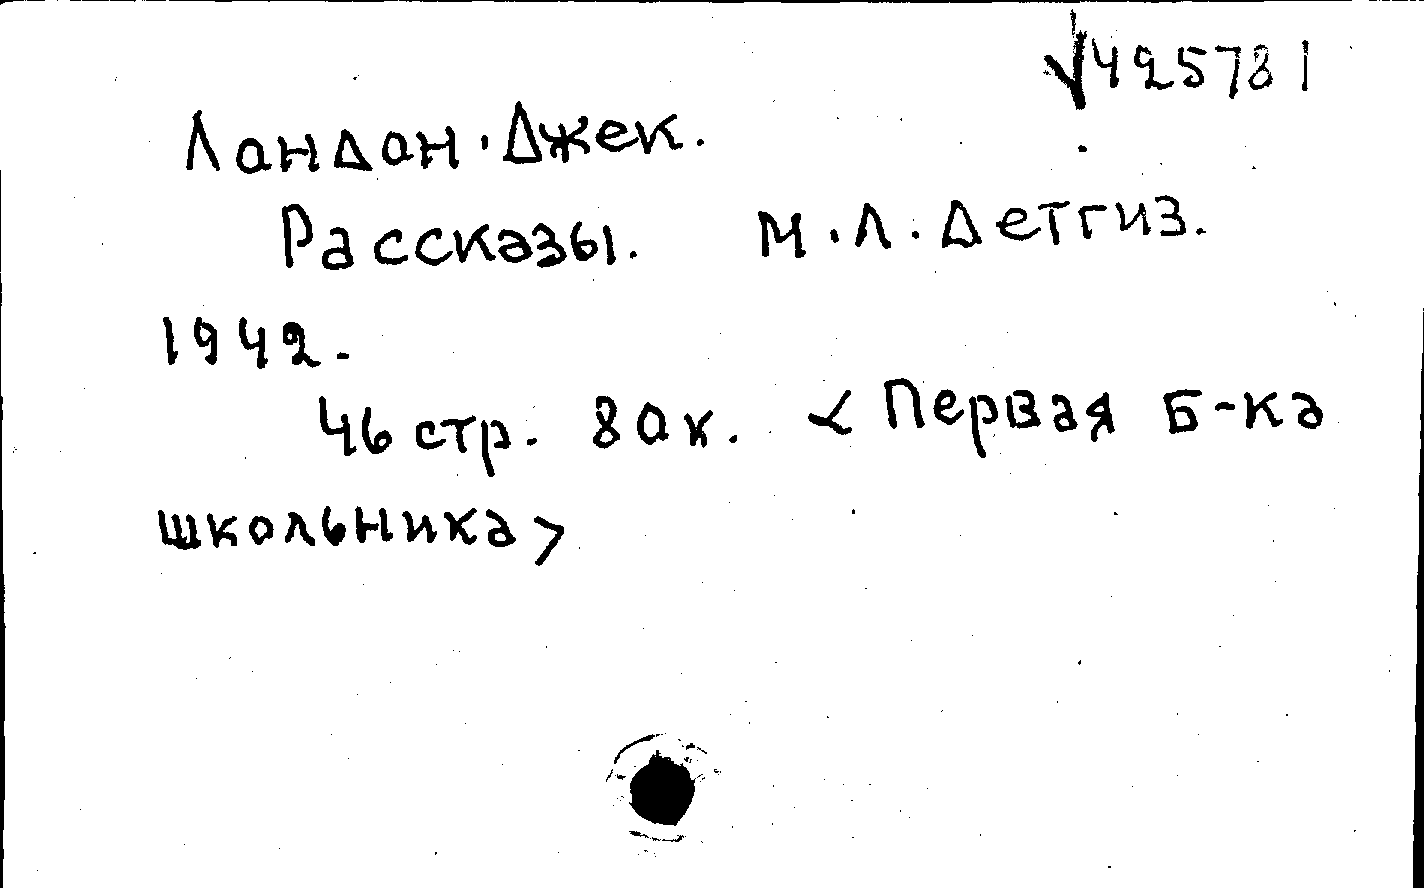 √425781
Лондон. Джек.
Рассказы. М.Л. Детгиз.
1942.
46 стр. 80к. <Первая Б-ка
школьника>